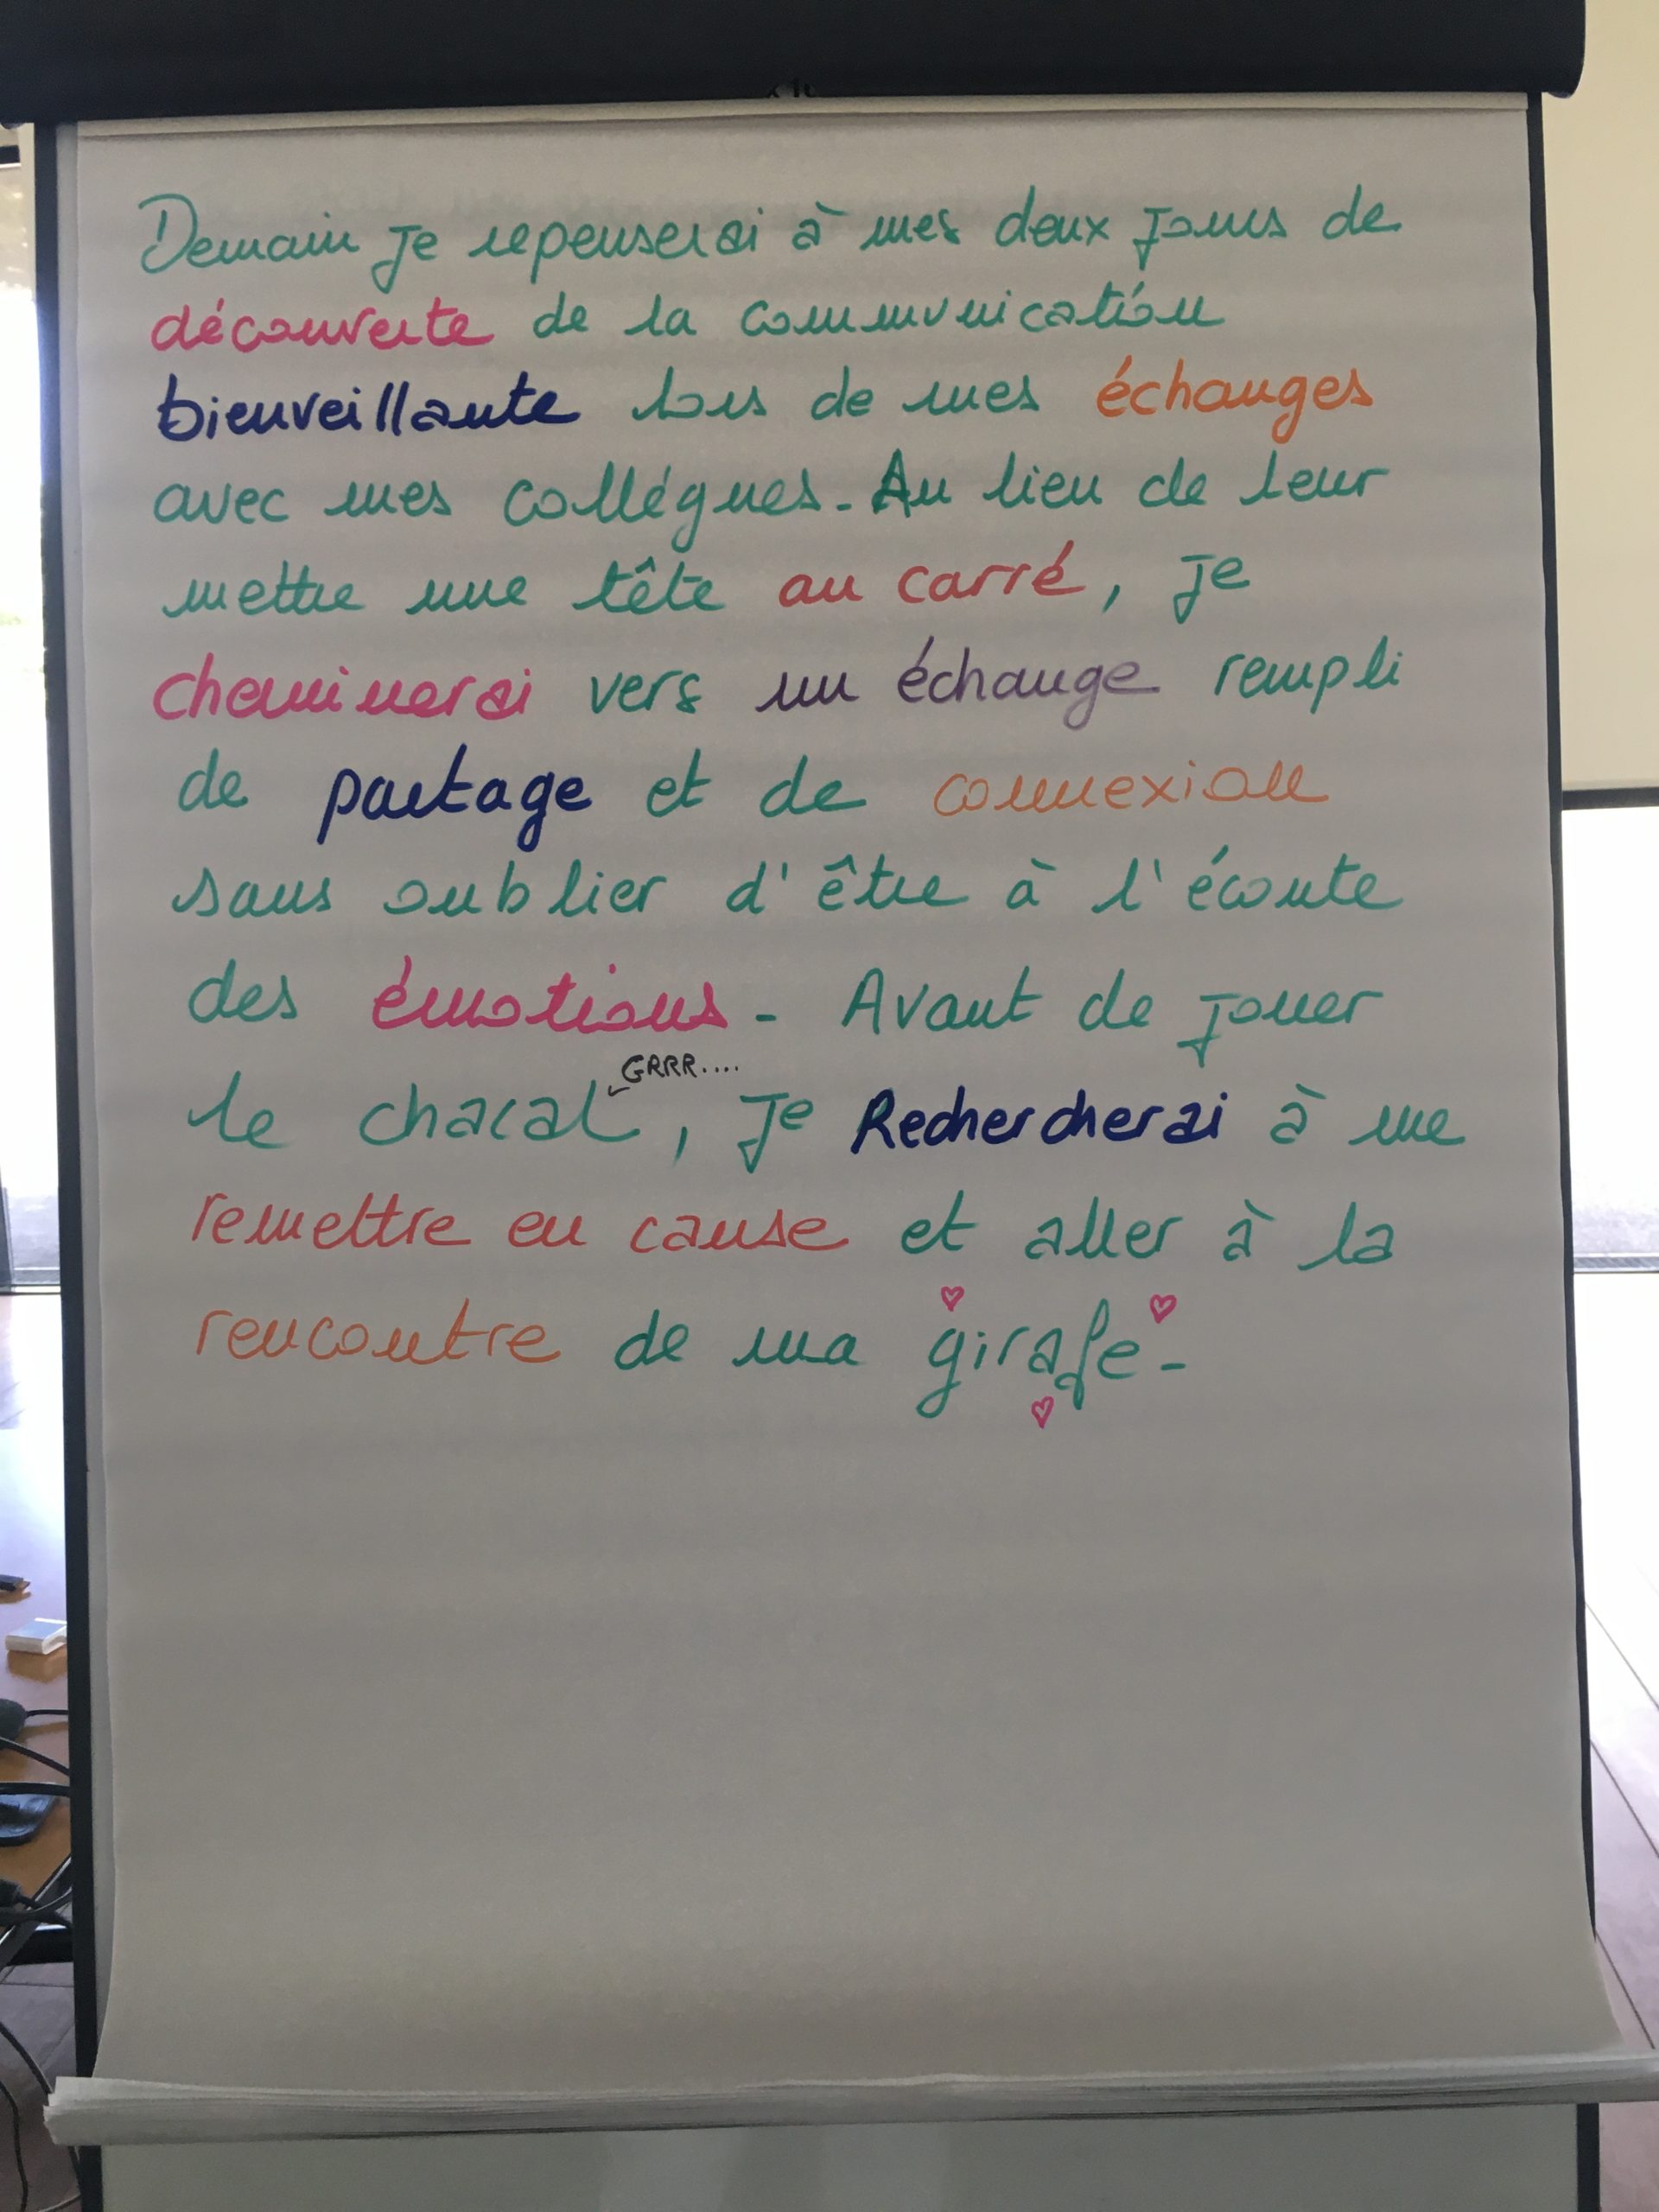 Demain je repenserai à mes deux jours de
découverte de la communication
bienveillante lors de mes échanges
avec mes collégues. Au lieu de leur
mettre une tête au carré, je
cheminerai vers un échange rempli
de partage et de connexion
sans oublier d'être à l'écoute
des émotions. Avant de jouer
GRRR....
le chacal, je Rechercherai à me
remettre en cause et aller à la
rencontre de ma girafe.